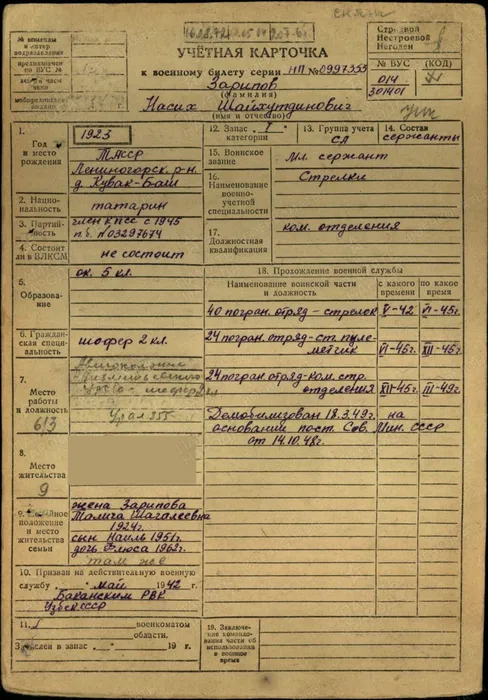 СНЯТЬ
№ команды
УЧЁТНАЯ КАРТОЧКА
к военному билету серии НП № 0997353
Зарипов
(фамилия)
Насих Шайхутдинович
(имя и отчество)
Строевой
Нестроевой
Негоден
№ ВУС
(КОД)
014
301401
1.
Год и место рождения
1923
ТАССР
Лениногорск. р-н
д. Кувак-Баш
2. Национальность
татарин
3. Партийность
член КПСС с 1945
п.б. №03297674
4. Состоит ли в ВЛКСМ
не состоит
5.
Образование
ок. 5 кл.
6. Гражданская специальность
шофер 2 кл.
7.
Место работы и должность
613
Урал 355
8.
Место жительства
9
положение и место жительства семьи
жена Зарипова
1924г.
сын Наиль 1951г.
дочь Флюса 1962г.
там же
10. Призван на действительную военную
службу май 1942 г.
Баканским РВК
Узбек ССР
11.
военкоматом
области.
в запас 19 г.
12. Запас I категории
13. Группа учета
СА
14. Состав
сержанты
15. Воинское звание
Мл. сержант
16.
Наименование военно-учетной специальности
Стрелки
17.
Должностная квалификация
ком. отделения
18. Прохождение военной службы
Наименование воинской части и должность
с какого времени
по какое время
40 погран. отряд - стрелок V-42 VI-45г.
24 погран. отряд - ст. пулеметчик VI-45г. XII-45г.
24 погран. отряд - ком. стр. отделения XII-45г. III-49г.
Демобилизован 18.3.49г. на
основании пост. Сов. Мин. СССР
от 14.10.48г.
19. Заключение командования части об использовании в военное время